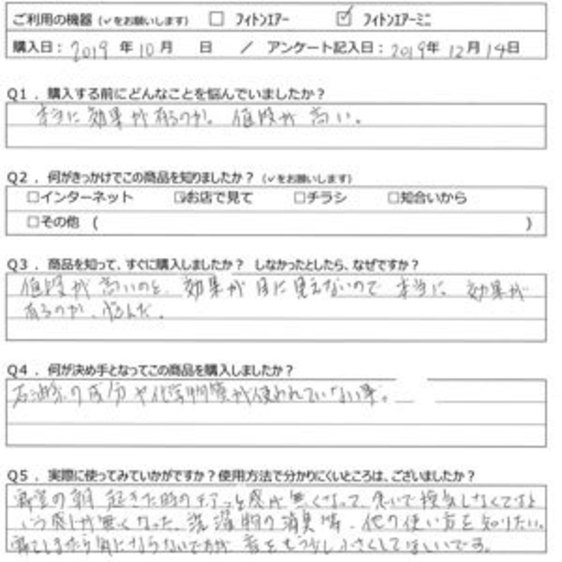 ご利用の機器（✓をお願いします） □ フィトンエアー ☑ フィトンエアーミニ
購入日： 2019 年 10 月 日 / アンケート記入日： 2019年 12月 14日
Q1．購入する前にどんなことを悩んでいましたか？
本当に効果が有るのか。値段が高い。
Q2．何がきっかけでこの商品を知りましたか？（✓をお願いします）
□インターネット ☑お店で見て □チラシ □知合いから
□その他 ( )
Q3．商品を知って、すぐに購入しましたか？ しなかったとしたら、なぜですか？
値段が高いのと、効果が目に見えないので本当に効果が
有るのか、悩んだ。
Q4．何が決め手となってこの商品を購入しましたか？
石油系の成分や化学物質が使われていない事。
Q5．実際に使ってみていかがですか？使用方法で分かりにくいところは、ございましたか？
寝室の朝起きた時のモアっと感が無くなって、急いで換気しなくてはと
いう感じが無くなった。洗濯物の消臭等、他の使い方を知りたい。
寝てしまったら気にならないですが、音をもう少し小さくしてほしいです。